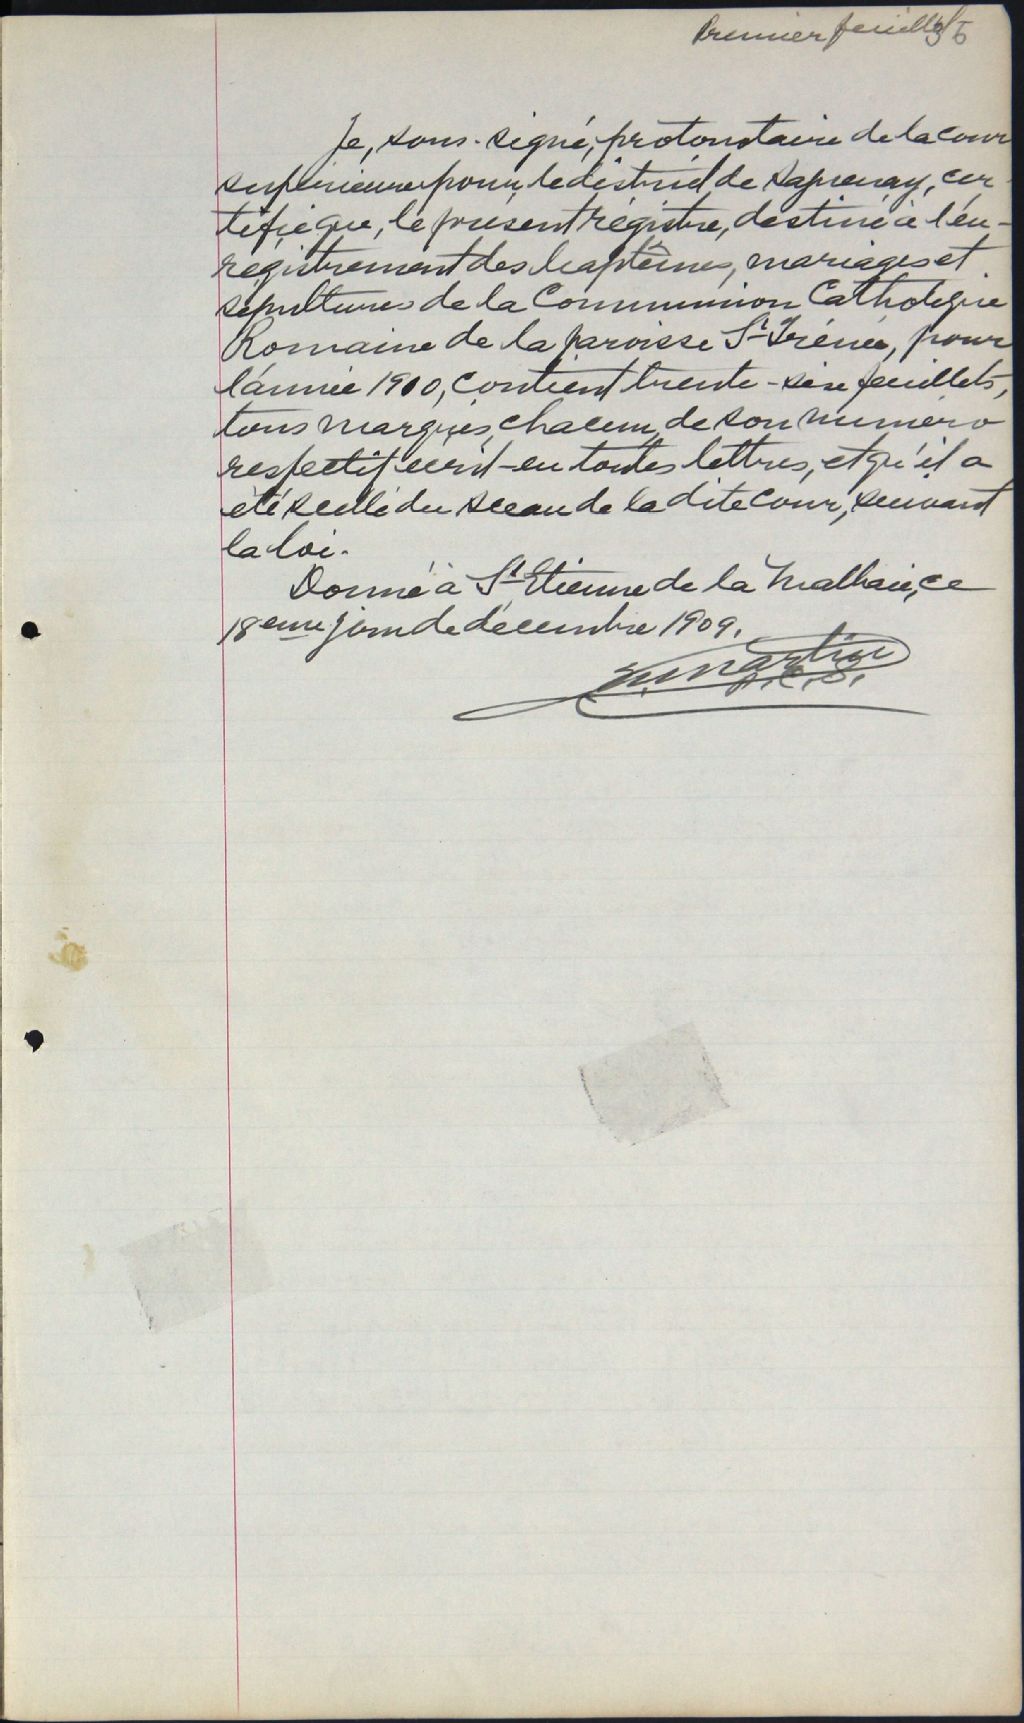 Premier feuillet
Je, sous-signé, protonotaire de la cour
supérieure pour le district de Saguenay, cer-
tifie que, le présent régistre, destiné à l'en-
registrement des baptêmes, mariages et
sépultures de la Communion Catholique
Romaine de la paroisse St Irénée, pour
l'année 1910, contient trente-six feuillets,
tous marqués, chacun, de son numéro
respectif écrit en toutes lettres, et qu'il a
été scellé du sceau de la dite cour, suivant
la loi.
Donné à St Etienne de la Malbaie, ce
18eme jour de décembre 1909.
Martin
P.C.S.